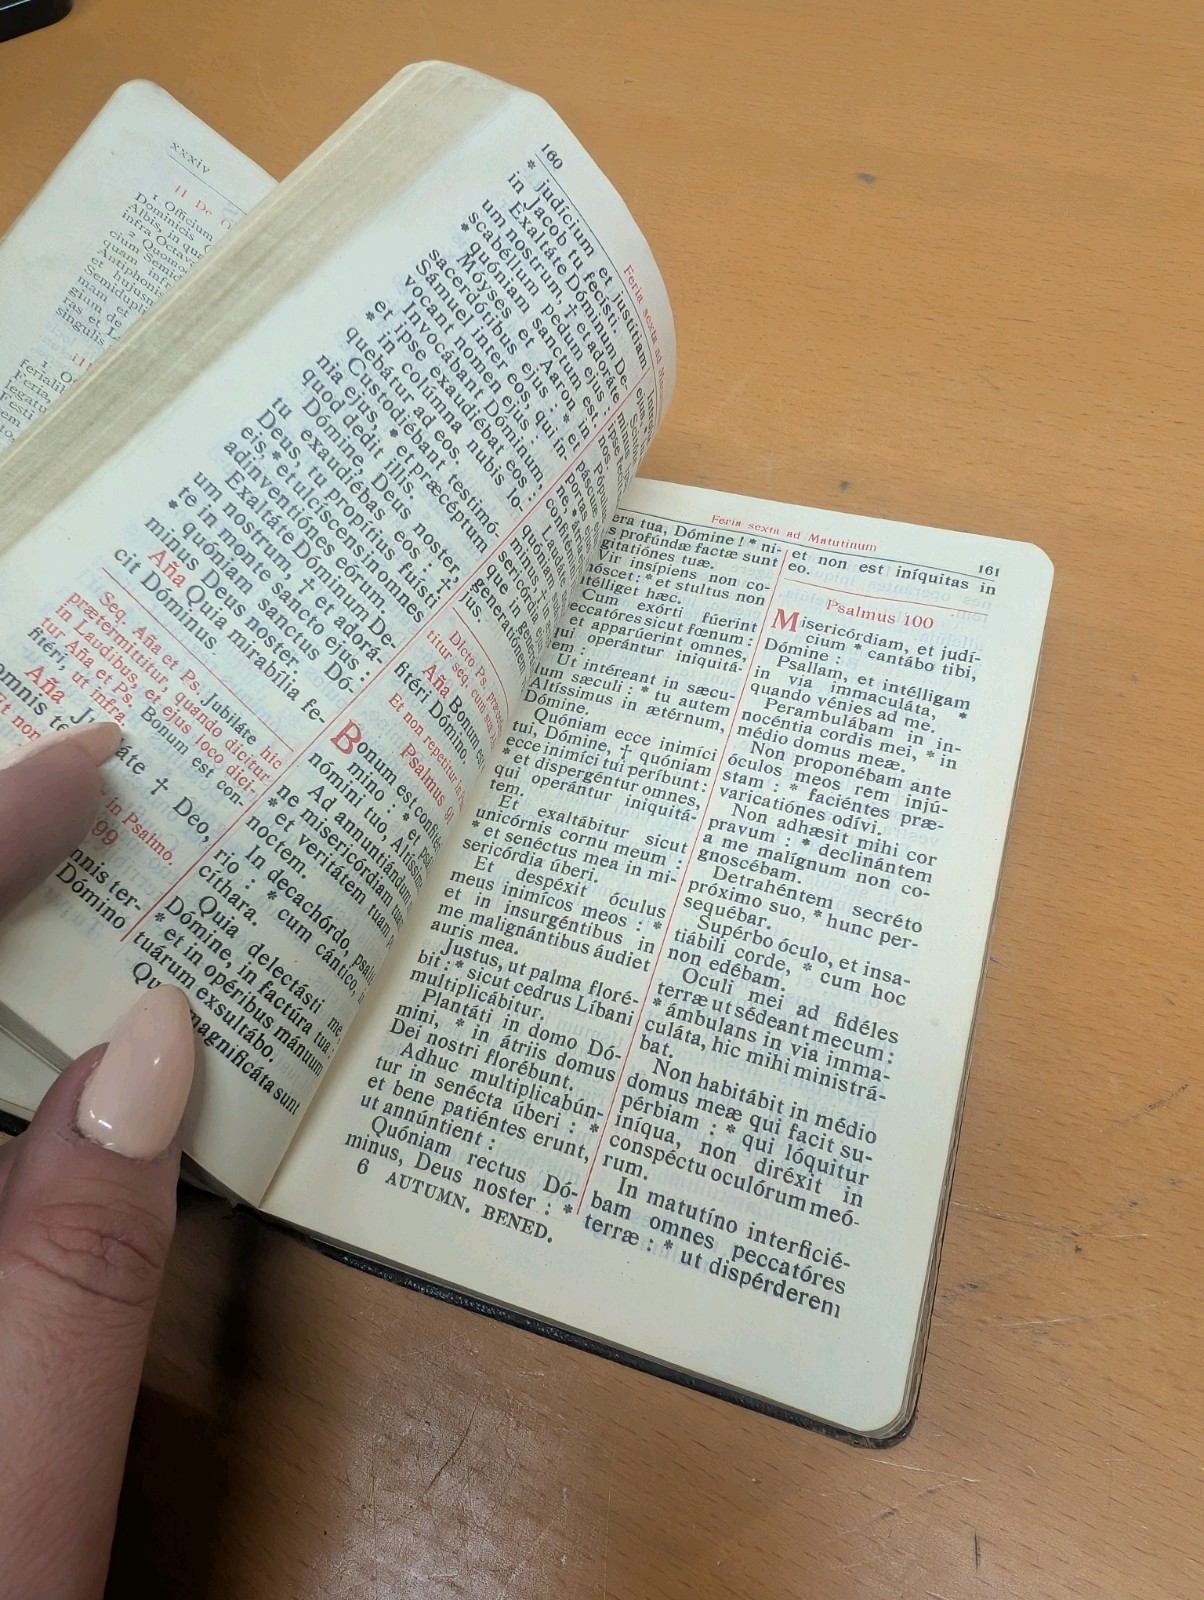 xxxiv
11 De
1 Officium
Dominicis
Albis, in qu
infra Octav
2 Quoni
cium Semi
quam infr
Antiphonis
et hujusm
Semidupli
mam et
gium de
ras et L
singulis
160
Feria sexta ad M
* judícium et justítiam
in Jacob tu fecísti.
Exaltáte Dóminum De-
um nostrum, † et adoráte
scabéllum pedum ejus :
* quóniam sanctum est.
Móyses et Aaron in
sacerdótibus ejus : * et
Sámuel inter eos, qui in-
vocant nomen ejus :
Invocábant Dóminum,
et ipse exaudiébat eos :
* in colúmna nubis lo-
quebátur ad eos.
Custodiébant testimó-
nia ejus, * et præcéptum
quod dedit illis.
Dómine, Deus noster,
tu exaudiébas eos : †
Deus, tu propítius fuísti
eis, * et ulcíscens in omnes
adinventiónes eórum.
Exaltáte Dóminum De-
um nostrum, † et adorá-
te in monte sancto ejus :
* quóniam sanctus Dó-
minus Deus noster.
Aña Quia mirabília fe-
cit Dóminus.
Seq. Aña et Ps. Jubiláte hic
prætermittitur, quando dicitur
in Laudibus, et ejus loco dici-
tur Aña et Ps. Bonum est con-
fitéri, ut infra.
Aña Ju áte † Deo,
omnis te
t nor in Psalmo.
99
nnis ter-
Dómino
Dicto Ps. præced
titur seq. cum sua
Aña Bonum est
fitéri Dómino.
Et non repetitur in
Psalmus 91
Bonum est confité
mino : * et psá
nómini tuo, Altíssim
Ad annuntiándum
ne misericórdiam tua
* et veritátem tuam
noctem.
In decachórdo, psalt
rio : * cum cántico, in
cíthara.
Quia delectásti me,
Dómine, in factúra tua :
* et in opéribus mánuum
tuárum exsultábo.
Qu magnificáta sunt
Feria sexta ad Matutinum
161
era tua, Dómine ! * ni-
s profúndæ factæ sunt
gitatiónes tuæ.
ir insípiens non co-
nóscet : * et stultus non
télliget hæc.
Cum exórti fúerint
eccatóres sicut fœnum :
et apparúerint omnes,
qui operántur iniquitá-
tem :
Ut intéreant in sæcu-
lum sæculi : * tu autem
Altíssimus in ætérnum,
Dómine.
Quóniam ecce inimíci
tui, Dómine, † quóniam
ecce inimíci tui períbunt :
* et dispergéntur omnes,
qui operántur iniquitá-
tem.
Et exaltábitur sicut
unicórnis cornu meum :
* et senéctus mea in mi-
sericórdia úberi.
Et despéxit óculus
meus inimícos meos : *
et in insurgéntibus in
me malignántibus áudiet
auris mea.
Justus, ut palma floré-
bit : * sicut cedrus Líbani
multiplicábitur.
Plantáti in domo Dó-
mini, * in átriis domus
Dei nostri florébunt.
Adhuc multiplicabún-
tur in senécta úberi : *
et bene patiéntes erunt,
ut annúntient :
Quóniam rectus Dó-
minus, Deus noster : *
6 AUTUMN. BENED.
et non est iníquitas in
eo.
Psalmus 100
Misericórdiam, et judí-
cium * cantábo tibi,
Dómine :
Psallam, et intélligam
in via immaculáta, *
quando vénies ad me.
Perambulábam in in-
nocéntia cordis mei, * in
médio domus meæ.
Non proponébam ante
óculos meos rem injú-
stam : * faciéntes præ-
varicatiónes odívi.
Non adhæsit mihi cor
pravum : * declinántem
a me malígnum non co-
gnoscébam.
Detrahéntem secréto
próximo suo, * hunc per-
sequébar.
Supérbo óculo, et insa-
tiábili corde, * cum hoc
non edébam.
Oculi mei ad fidéles
terræ ut sédeant mecum :
* ámbulans in via imma-
culáta, hic mihi ministrá-
bat.
Non habitábit in médio
domus meæ qui facit su-
pérbiam : * qui lóquitur
iníqua, non diréxit in
conspéctu oculórum meó-
rum.
In matutíno interficié-
bam omnes peccatóres
terræ : * ut dispérderem